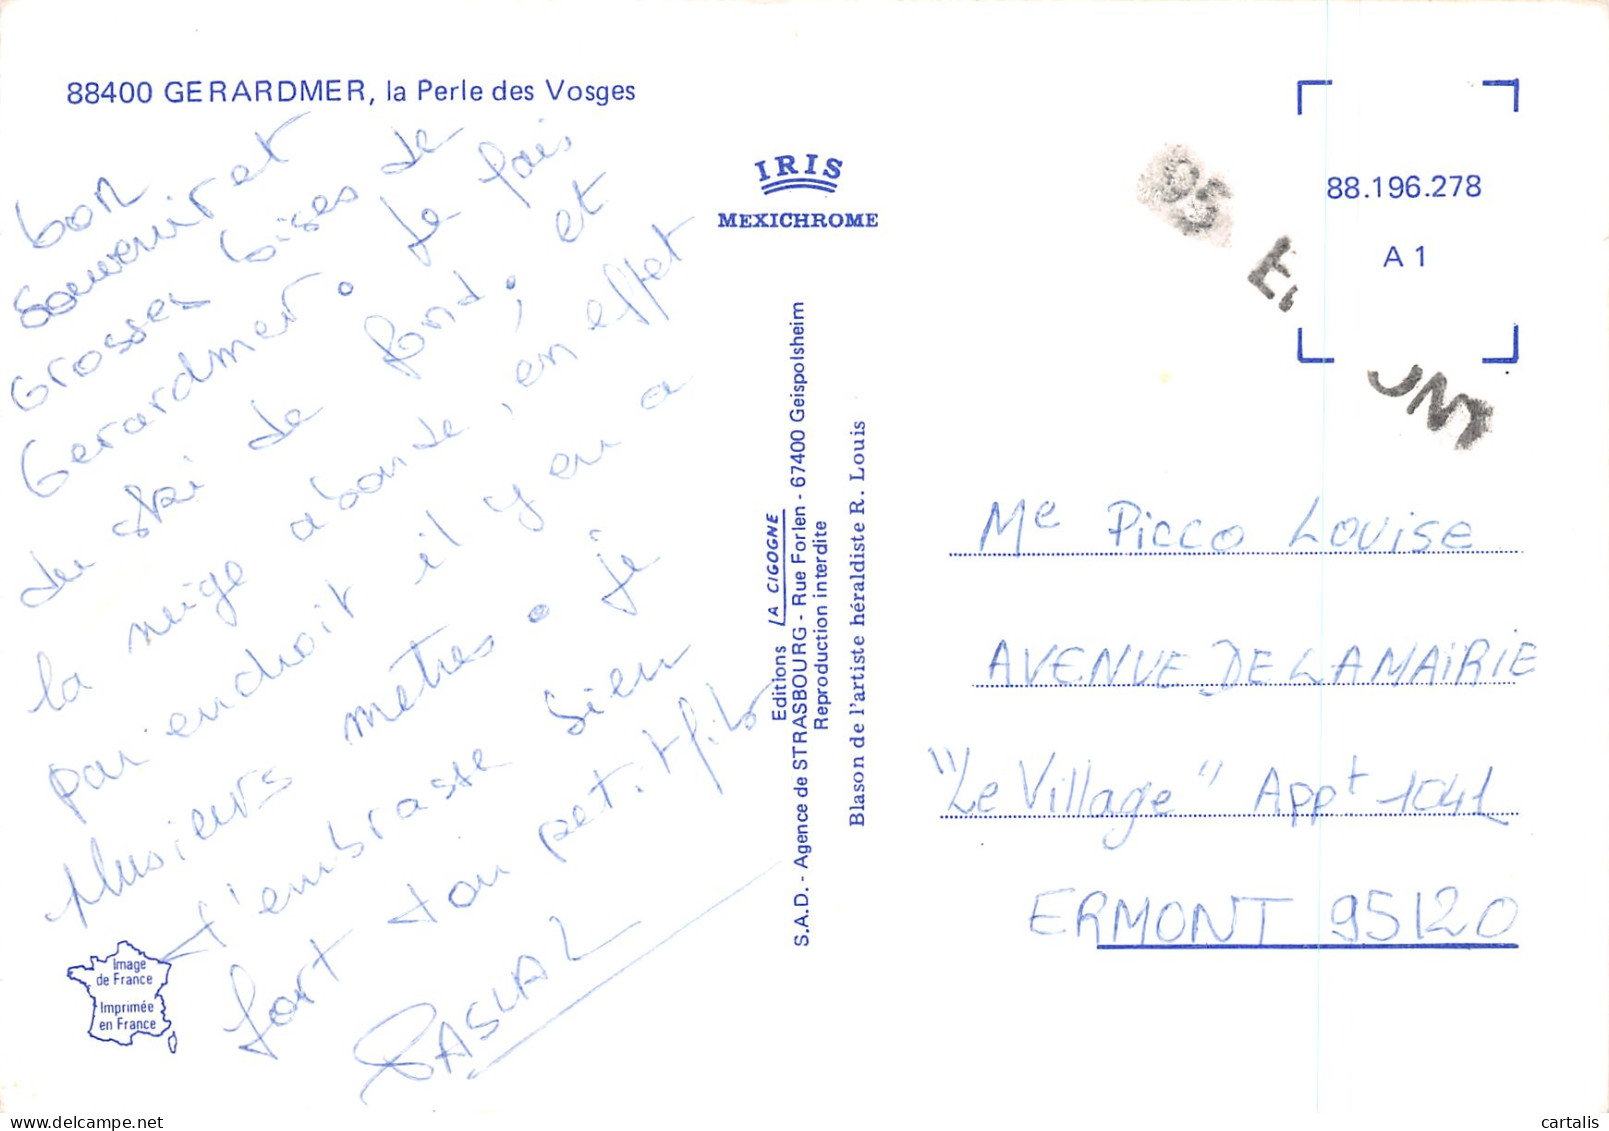 88400 GERARDMER, la Perle des Vosges
bon
souvenir et
Grosses bises de
Gerardmer. Je fais
du ski de fond, et
la neige abonde, en effet
par endroit il y en a
plusieurs mètres. Je
t'embrasse bien
fort ton petit fils
PASCAL
Image
de France
Imprimée
en France
IRIS
MEXICHROME
Editions LA CIGOGNE
S.A.D. - Agence de STRASBOURG - Rue Forlen - 67400 Geispolsheim
Reproduction interdite
Blason de l'artiste héraldiste R. Louis
88.196.278
A 1
95
Me Picco Louise
AVENUE DE LA MAIRIE
"Le Village" Appt 1041
ERMONT 95120
delcampe.net
cartalis